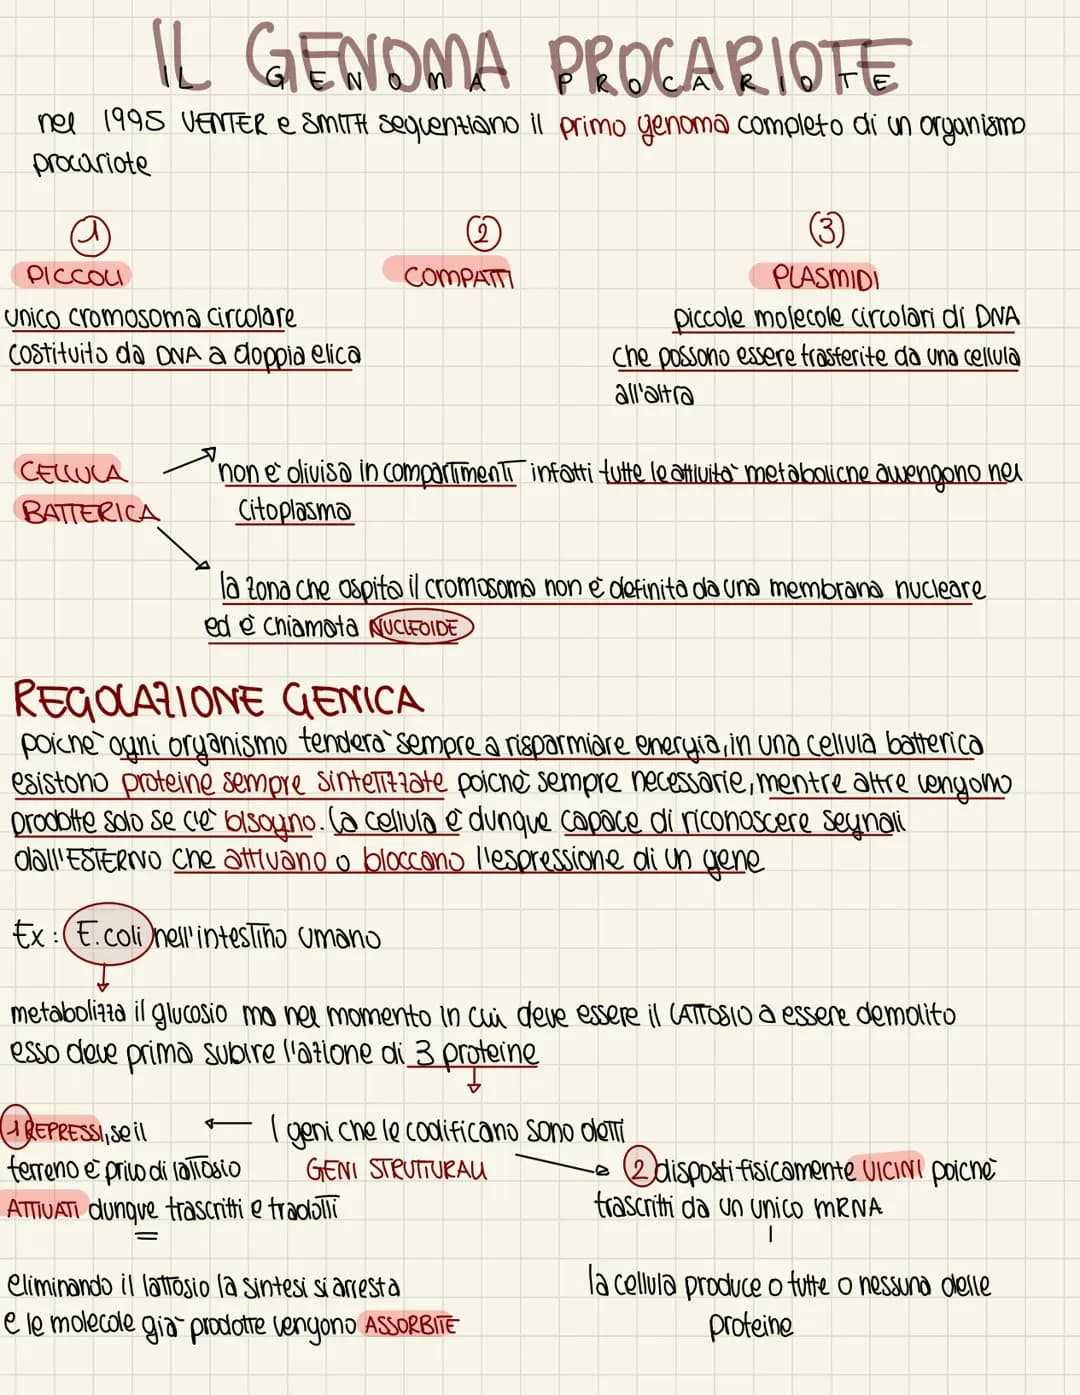 IL GENOMA PROCARIOTE
IL GENOMA PROCARIOTE
nel 1995 VENTER e SMITH sequenziano il primo genoma completo di un organismo
procariote
1
PICCOLI
unico cromosoma circolare
costituito da DNA a doppia elica
2
COMPATTI
3
PLASMIDI
piccole molecole circolari di DNA
che possono essere trasferite da una cellula
all'altra
CELLULA
BATTERICA
non è divisa in compartimenti infatti tutte le attività metaboliche avvengono nel
citoplasma
la zona che ospita il cromosoma non è definita da una membrana nucleare
ed è chiamata NUCLEOIDE
REGOLAZIONE GENICA
poichè ogni organismo tenderà sempre a risparmiare energia, in una cellula batterica
esistono proteine sempre sintetizzate poichè sempre necessarie, mentre altre vengono
prodotte solo se c'è bisogno. La cellula è dunque capace di riconoscere segnali
dall'ESTERNO che attivano o bloccano l'espressione di un gene
Ex: E. coli nell'intestino umano
metabolizza il glucosio ma nel momento in cui deve essere il LATTOSIO a essere demolito
esso deve prima subire l'azione di 3 proteine
I geni che le codificano sono detti
GENI STRUTTURALI
1 REPRESSI, se il
terreno è privo di lattosio
ATTIVATI dunque trascritti e tradotti
2 disposti fisicamente VICINI poichè
trascritti da un unico mRNA
eliminando il lattosio la sintesi si arresta
e le molecole già prodotte vengono ASSORBITE
la cellula produce o tutte o nessuna delle
proteine